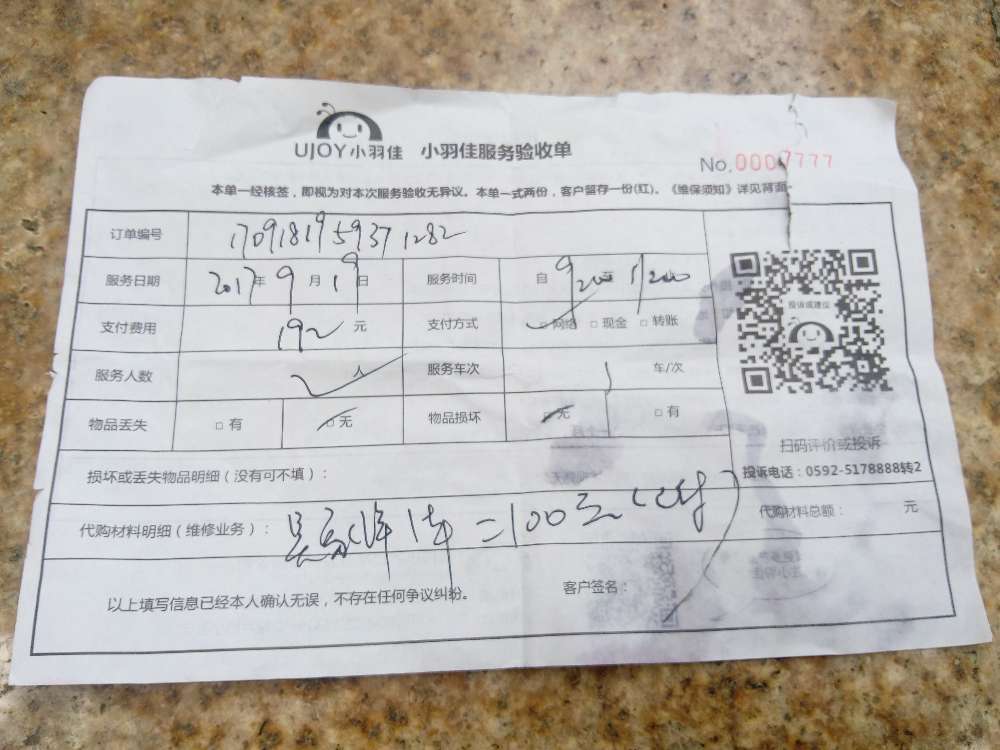 UJOY小羽佳 小羽佳服务验收单
No.0007777
本单一经核签，即视为对本次服务验收无异议。本单一式两份，客户留存一份(红)。《维保须知》详见背面
订单编号 1709181959371282
服务日期 2017年9月19日 服务时间 自
支付费用 192元 支付方式 □网络 □现金 □转账
服务人数 人 服务车次 车/次
物品丢失 □有 □无 物品损坏 □无 □有
投诉或建议
扫码评价或投诉
投诉电话：0592-5178888转2
损坏或丢失物品明细（没有可不填）：
代购材料明细（维修业务）： =100元 代购材料总额： 元
以上填写信息已经本人确认无误，不存在任何争议纠纷。 客户签名：